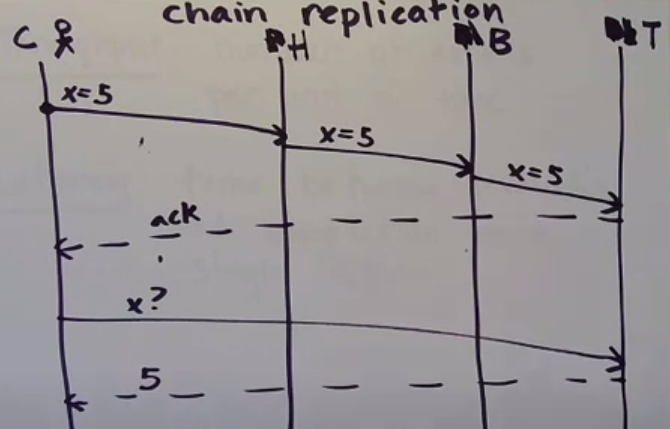 chain replication
C H B T
x=5
x=5
x=5
ack
x?
5